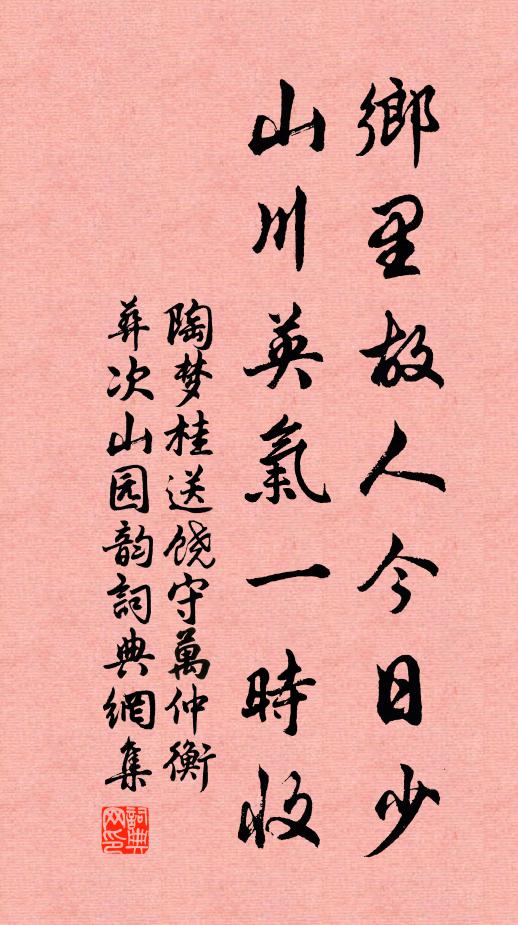 鄉里故人今日少
山川英氣一時收
陶梦桂送饶守萬仲衡
葬次山园韵詞典網集
詞典网印